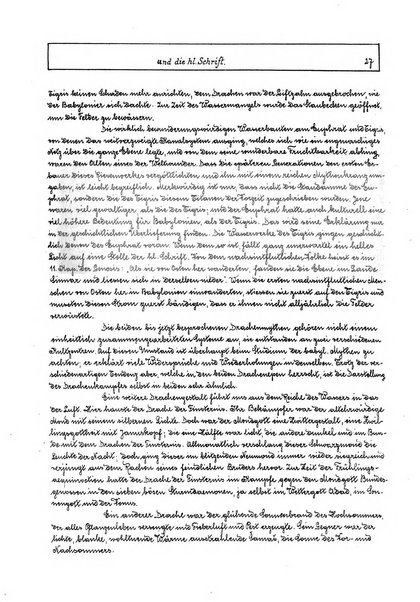 und die hl. Schrift.
27
Tigris keinen Schaden mehr anrichten, dem Drachen war der Giftzahn ausgebrochen, wie
der Babylonier sich dachte. Zur Zeit des Wassermangels wurde das Staubecken geöffnet,
um die Felder zu bewässern.
Die wirklich bewunderungswürdigen Wasserbauten am Euphrat und Tigris,
von denen das weitverzweigte Kanalsystem ausging, welches sich wie ein engmaschiges
Netz über die ganze Ebene legte, und von dem eine wunderbare Fruchtbarkeit abhing,
waren den Alten eines der Weltwunder. Dass die späteren Generationen den ersten Er-
bauer dieses Riesenwerkes vergöttlichten und ihn mit einem reichen Mythenkranz um-
gaben, ist leicht begreiflich. Merkwürdig ist nur, dass nicht die Staudämme des Eu-
phrat, sondern die des Tigris diesem Titanen der Vorzeit zugeschrieben wurden. Jene
waren viel gewaltiger als die des Tigris; und der Euphrat hatte auch kulturell eine
viel höhere Bedeutung für Babylonien, als der Tigris. Das wird seine Erklärung nur
in der geschichtlichen Überlieferung finden. Die Wasserwerke des Tigris gingen geschicht-
lich denen des Euphrat voran. Wenn dem so ist, fällt ganz unerwartet ein helles
Licht auf eine Stelle der hl. Schrift. Von dem nachsintflutlichen Volke heisst es im
11. Kap. der Genesis: Als sie von Osten her wanderten, fanden sie die Ebene im Lande
Sinear und liessen sich in derselben nieder. Wenn die ersten nachsintflutlichen Men-
schen von Osten her in Babylonien einwanderten, stiessen sie zuerst auf den Tigris und
mussten diesen Strom zuerst bändigen, dass er ihnen nicht alljährlich die Felder
verwüstete.
Die beiden bis jetzt besprochenen Drachenmythen gehören nicht einem
einheitlich zusammengearbeiteten Systeme an, sie entstanden an zwei verschiedenen
Kultzentren. Auf diesen Umstand ist überhaupt beim Studium der babyl. Mythen zu
achten, er erklärt viele Widersprüche und Wiederholungen in denselben. Trotz der ver-
schiedenartigen Tendenz aber, welche in den beiden Drachenepen herrscht, ist die Darstellung
des Drachenkampfes selbst in beiden sehr ähnlich.
Eine weitere Drachengestalt führt uns aus dem Reiche des Wassers in das
der Luft. Hier hauste der Drache der Finsternis. Ihn bekämpfte war der allehrwürdige
Mond mit seinem silbernen Lichte. Doch war der Mondgott eine Zwittergestalt, eine Zwil-
lingsgottheit mit Januskopf; die eine Hälfte war licht, die andere dunkel und im Bun-
de mit dem Drachen der Finsternis. Allmonatlich verschlang dieser Schwarzmond die
Leuchte der Nacht; doch ging dieser im blitzenden Neumond immer wieder siegreich und
verjüngt aus dem Rachen seines feindlichen Bruders hervor. Zur Zeit der Frühlings-
aequinoktien hatte der Drache der Finsternis im Kampfe gegen den Mondgott Bundes-
genossen in den sieben bösen Sturmdaemonen, ja selbst im Wettergott Adad, im Son-
nengott und der Venus.
Ein anderer Drache war der glühende Sonnenbrand des Hochsommers,
der alles Pflanzenleben versengte und Fieberluft und Pest erzeugte. Sein Gegner war der
lichte, blanke, wohltuende Wärme ausstrahlende Šamaš, die Sonne des Vor- und
Nachsommers.